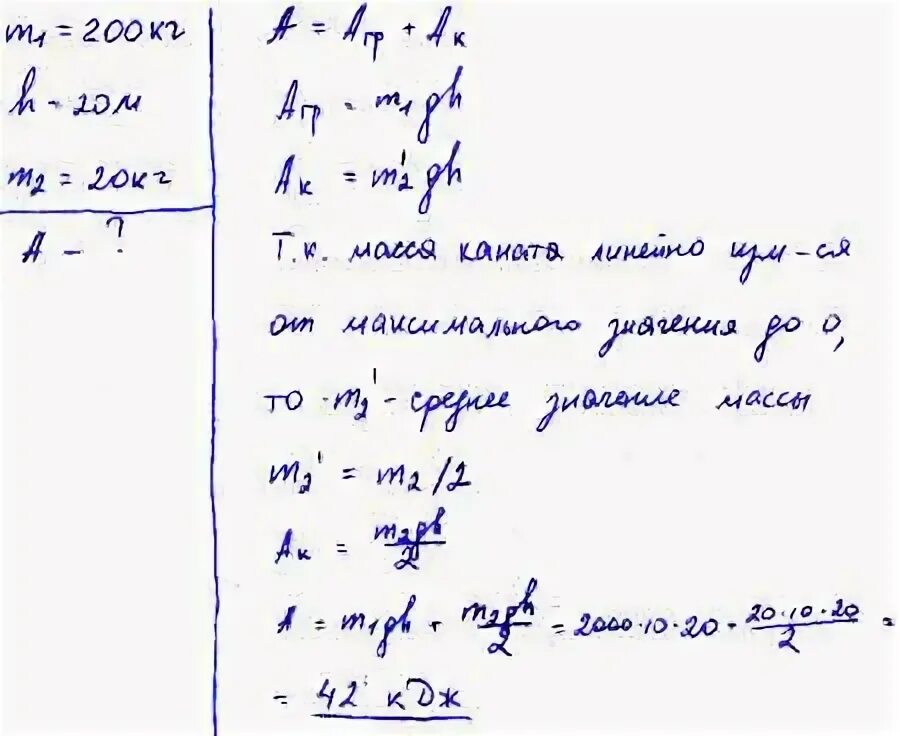 m₁ = 200 кг
h - 20 м
m₂ = 20 кг
A - ?
A = Aгр + Aк
Aгр = m₁gh
Aк = m₂'gh
Т.к. масса каната линейно изм-ся
от максимального значения до 0,
то m₂' - среднее значение массы
m₂' = m₂/2
Aк = m₂gh/2
A = m₁gh + m₂gh/2 = 2000·10·20 + 20·10·20/2 =
= 42 кДж